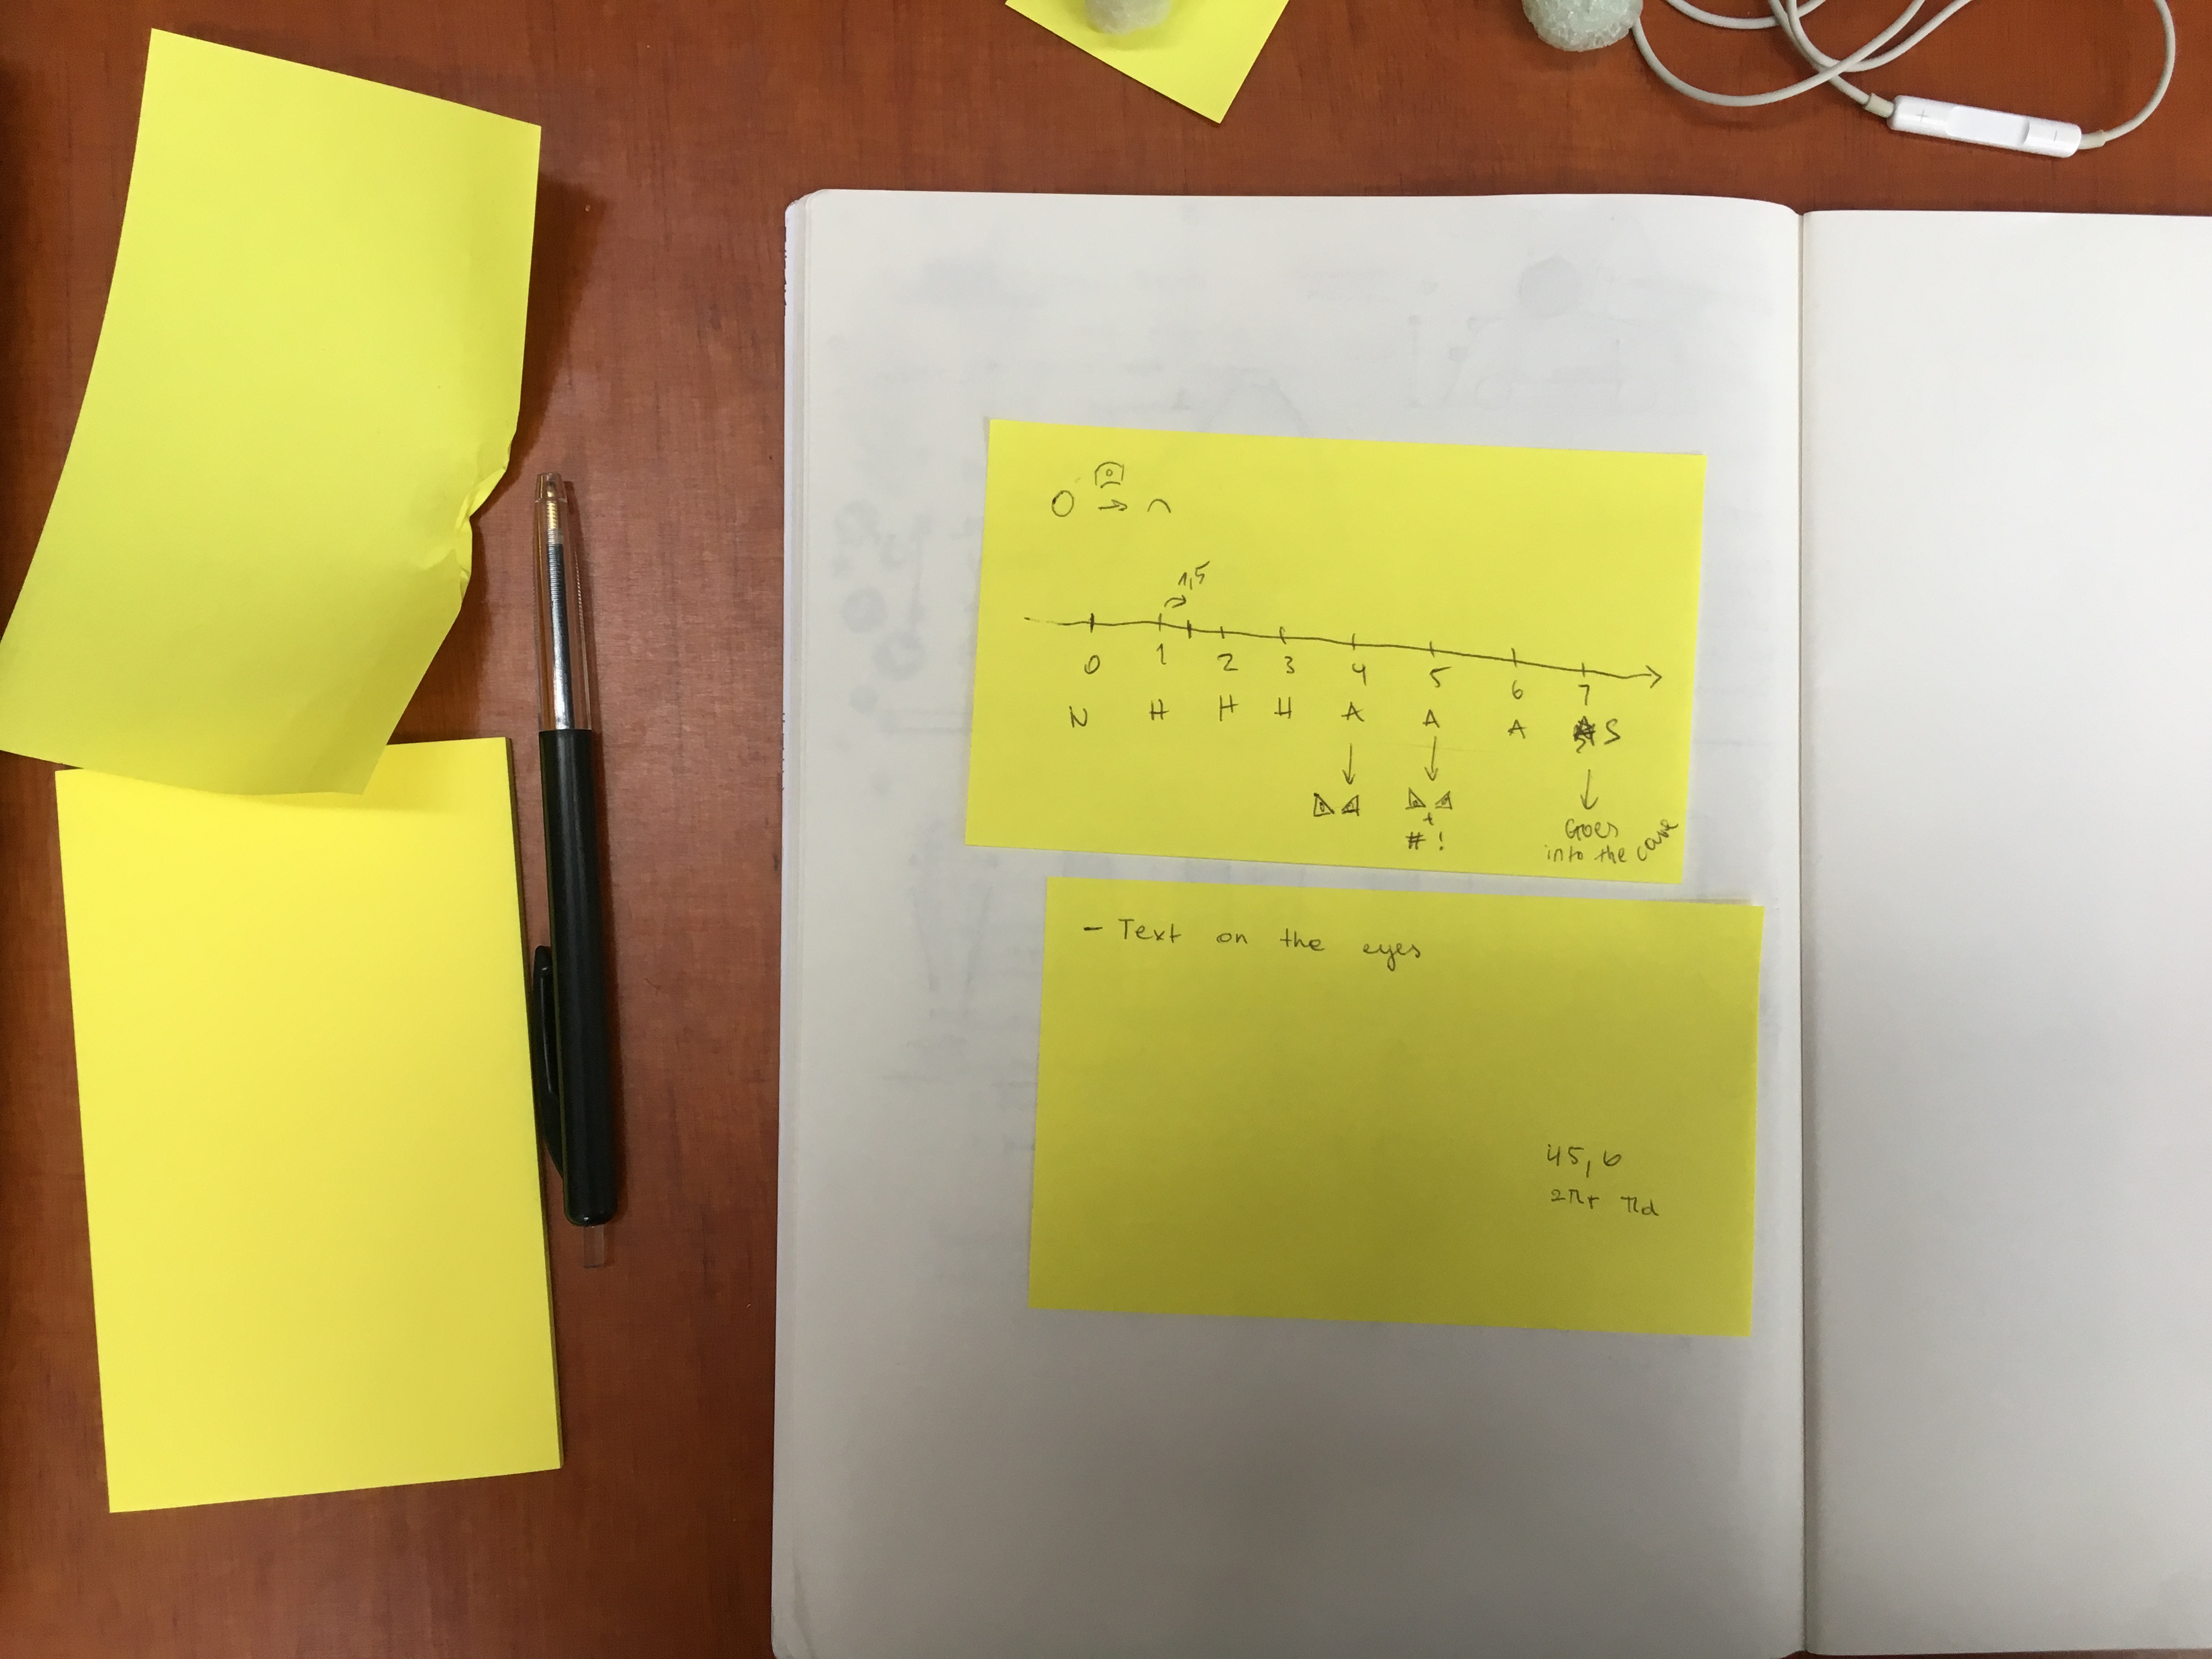 1,5
0 1 2 3 4 5 6 7
N H H H A A A S
+
# !
Goes
into the cave
- Text on the eyes
45,6
2πr πd